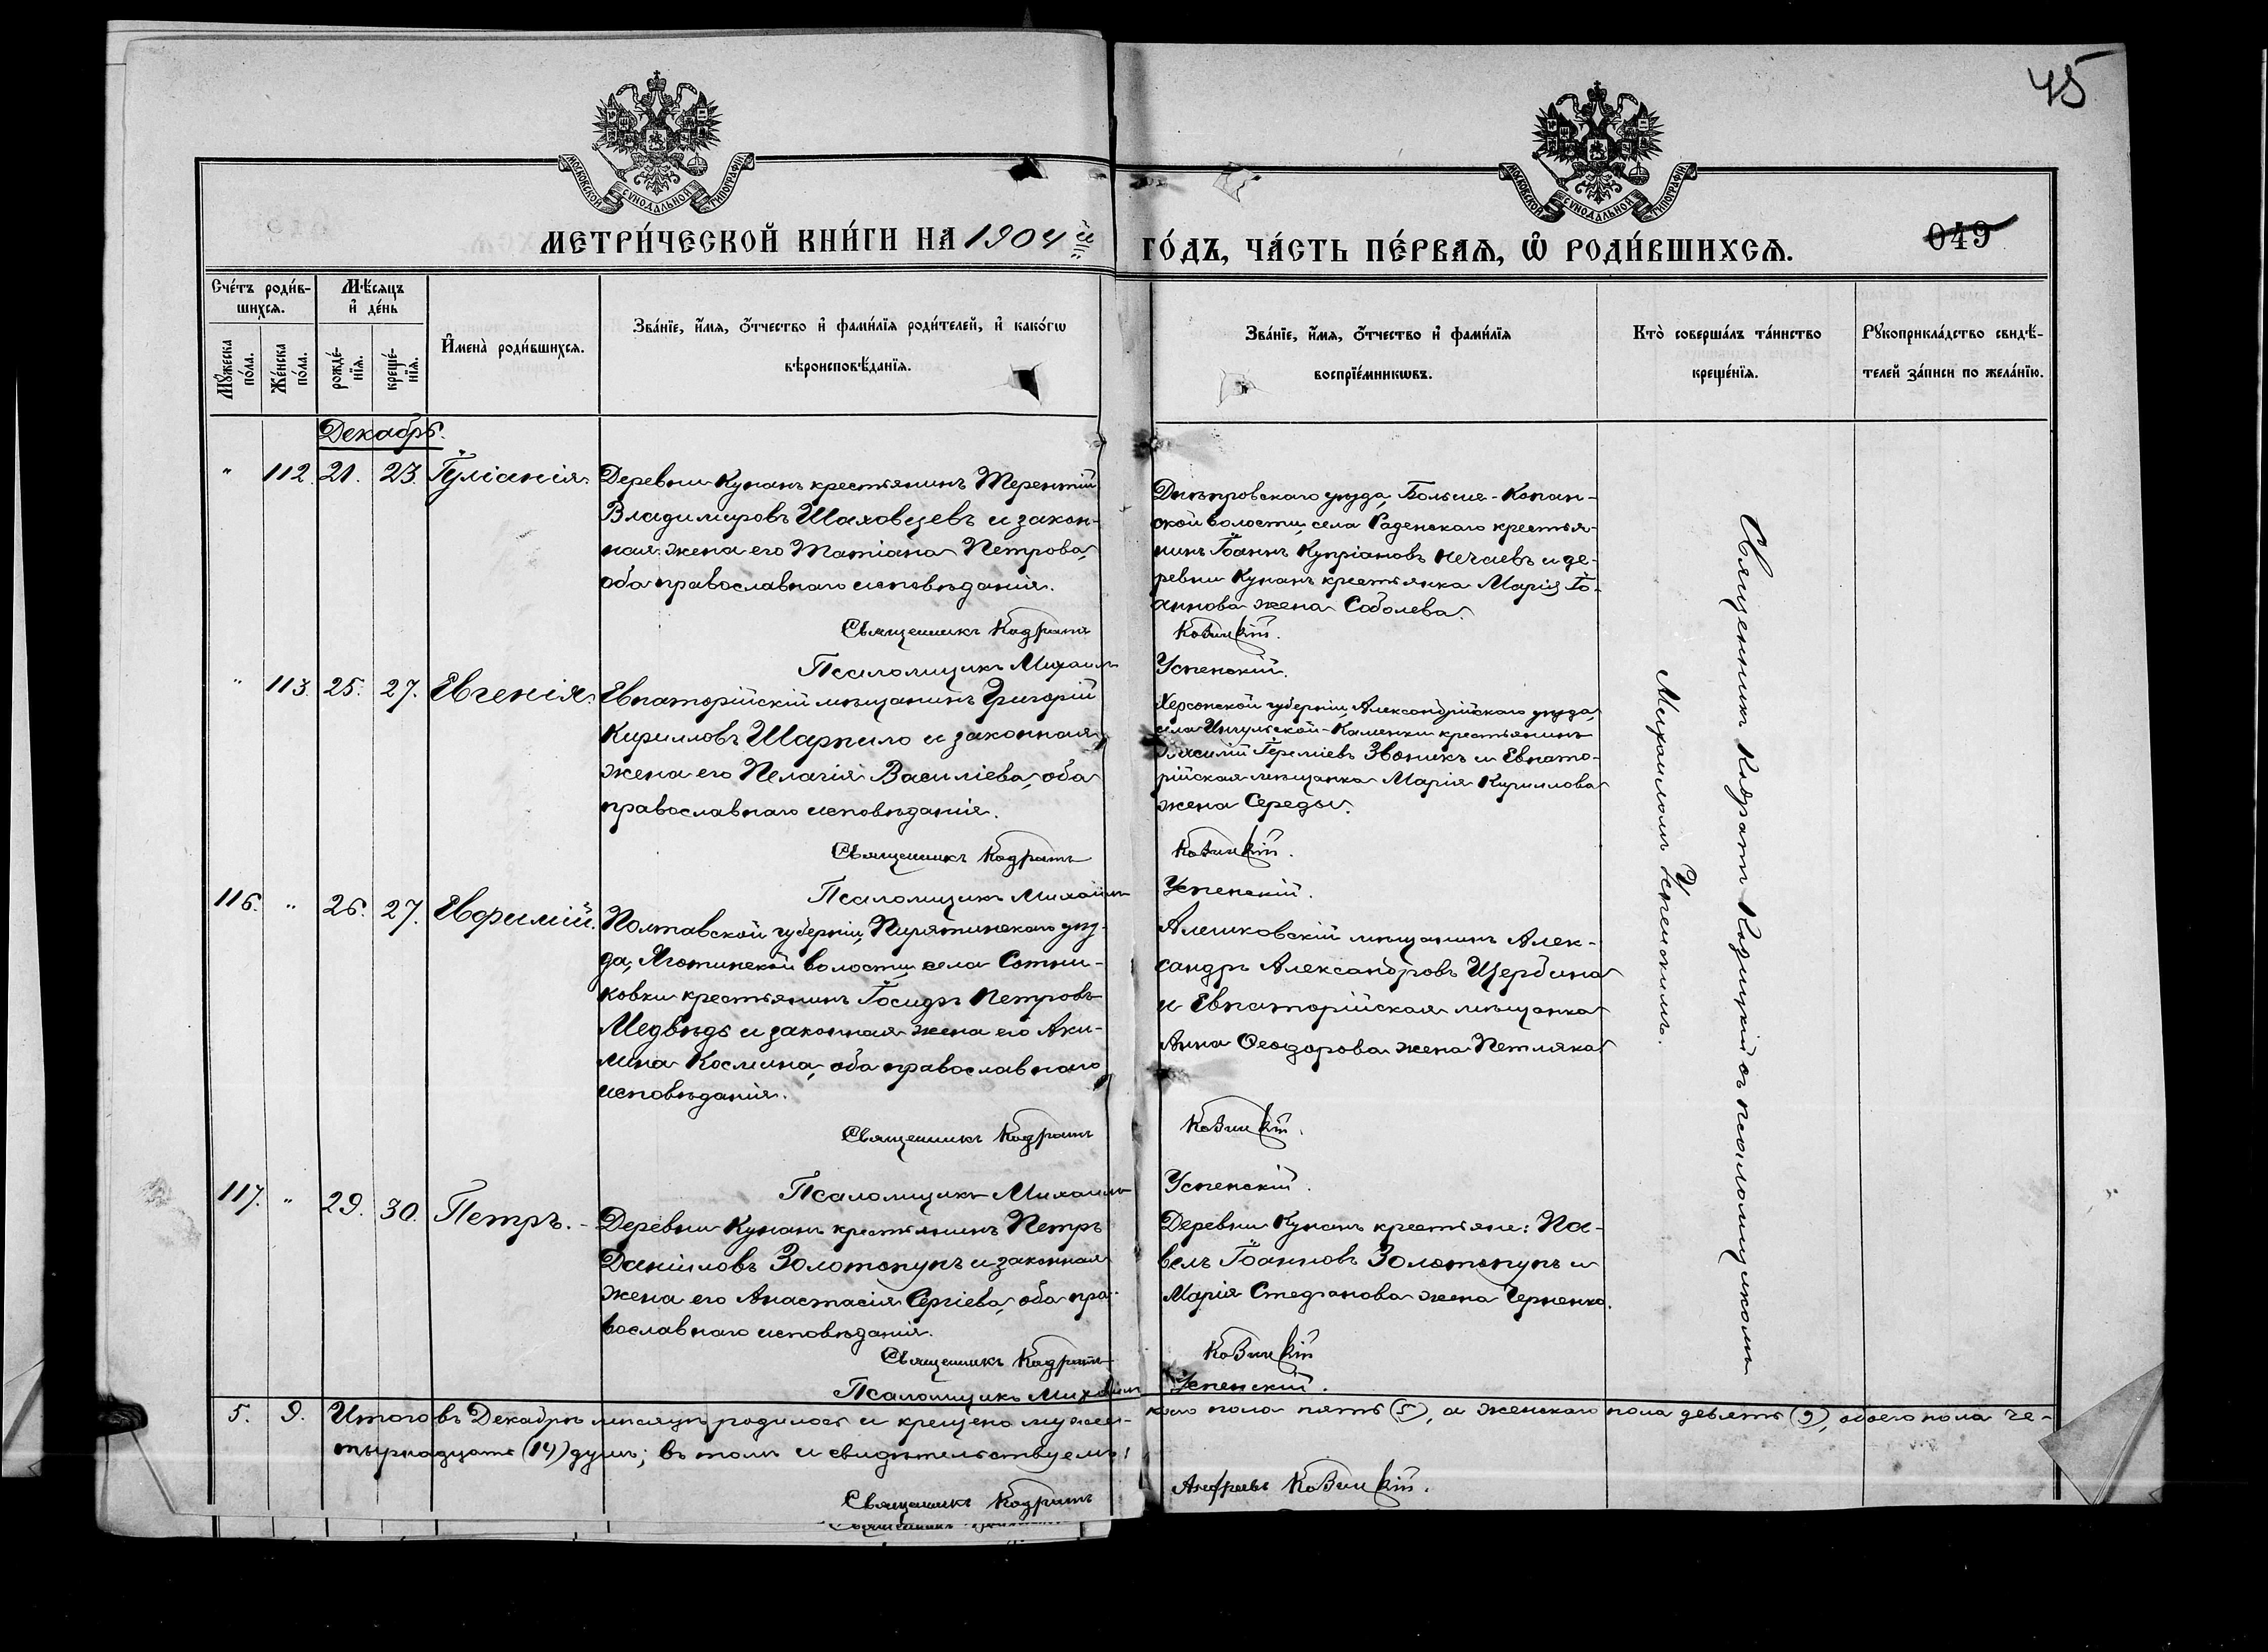 45
МОСКОВСКОЙ СУНОДАЛЬНОЙ ТИПОГРАФІИ
МОСКОВСКОЙ СУНОДАЛЬНОЙ ТИПОГРАФІИ
МЕТРИ́ЧЕСКОЙ КНИ́ГИ НА 1904 й
ГО́ДЪ, ЧА́СТЬ ПЕ́РВАѦ, Ѽ РОДИ́ВШИХСѦ.
049
Сче́тъ роди́в-
шихсѧ.
Мꙋ́жеска по́ла.
Же́нска по́ла.
Мѣ́сяцъ
и҆ де́нь
рожде́-
нїѧ.
креще́-
нїѧ.
И҆мена̀ роди́вшихсѧ.
Зва́нїе, и҆́мѧ, ѻ҆́тчество и҆ фами́лїѧ роди́телей, и҆ како́гѡ
вѣроисповѣ́данїѧ.
Зва́нїе, и҆́мѧ, ѻ҆́тчество и҆ фами́лїѧ
воспрїе́мникѡвъ.
Кто̀ соверша́лъ та́инство
креще́нїѧ.
Рꙋкоприкла́дство свидѣ́-
телей за́писи по жела́нїю.
Декабрь.
" 112. 21. 23. Іуліанія.
Деревни Кунанъ крестьянинъ Терентій
Владиміровъ Шаховцевъ и закон-
ная жена его Татіана Петрова,
оба православнаго исповѣданія.
Священникъ Кодратъ
Псаломщикъ Михаилъ
Днѣпровскаго уѣзда, Больше-Копан-
ской волости, села Раденскаго крестья-
нинъ Іоаннъ Купріановъ Нечаевъ и де-
ревни Кунанъ крестьянка Марія Іо-
аннова жена Соболева.
Козицкій.
Успенскій.
" 113. 25. 27. Евгенія.
Евпаторійскій мѣщанинъ Григорій
Кирилловъ Шарпило и законная
жена его Пелагія Василіева, оба
православнаго исповѣданія.
Священникъ Кодратъ
Псаломщикъ Михаилъ
Херсонской губерніи, Александрійскаго уѣзда,
села Ингульской-Каменки крестьянинъ
Василій Іереміевъ Звоникъ и Евпато-
рійская мѣщанка Марія Кириллова
жена Середы.
Козицкій.
Успенскій.
116. " 26. 27. Евфимій.
Полтавской губерніи, Пирятинскаго уѣз-
да, Яготинской волости, села Сотни-
ковки крестьянинъ Іосифъ Петровъ
Медвѣдь и законная жена его Аки-
лина Космина, оба православнаго
исповѣданія.
Священникъ Кодратъ
Псаломщикъ Михаилъ
Алешковскій мѣщанинъ Алек-
сандръ Александровъ Щербина
и Евпаторійская мѣщанка
Анна Ѳеодорова жена Петляка
Козицкій.
Успенскій.
117. " 29. 30. Петръ.
Деревни Кунанъ крестьянинъ Петръ
Даніиловъ Золотопупъ и законная
жена его Анастасія Сергіева, оба пра-
вославнаго исповѣданія.
Священникъ Кодратъ
Псаломщикъ Михаилъ
Деревни Кунанъ крестьяне: Па-
велъ Іоанновъ Золотопупъ и
Марія Стефанова жена Черненко.
Козицкій
Успенскій.
Священникъ Кодратъ Козицкій съ псаломщикомъ
Михаиломъ Успенскимъ.
5. 9. Итого въ Декабрѣ мѣсяцѣ родилось и крещено мужес-
каго пола пять (5), а женскаго пола девять (9), обоего пола че-
тырнадцать (14) душъ; въ томъ и свидѣтельствуемъ:
Священникъ Кодратъ
Козицкій.